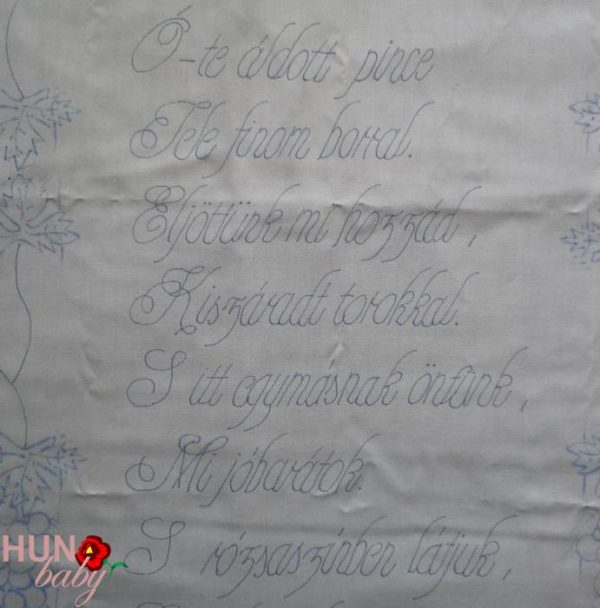 Ó-te áldott pince
Tele finom borral.
Eljöttünk mi hozzád,
Kiszáradt torokkal.
S itt egymásnak öntünk,
Mi jóbarátok.
S rózsaszínben látjuk,
HUN
baby